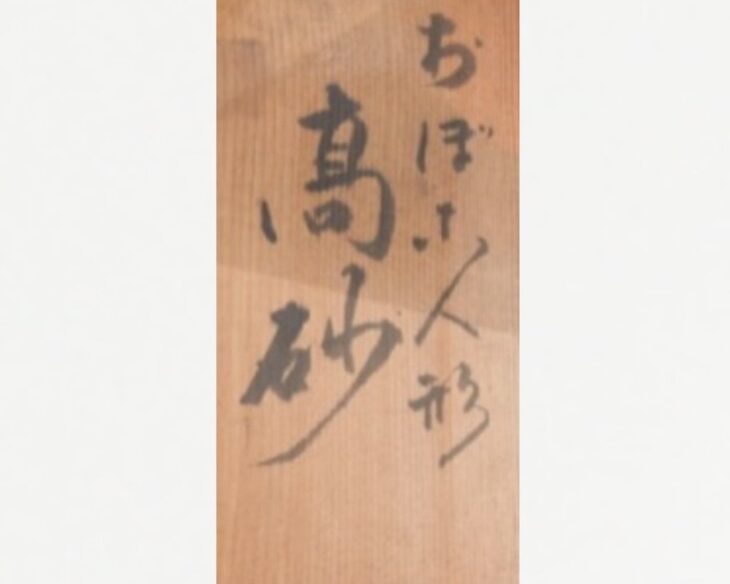 おぼこ人形
高砂